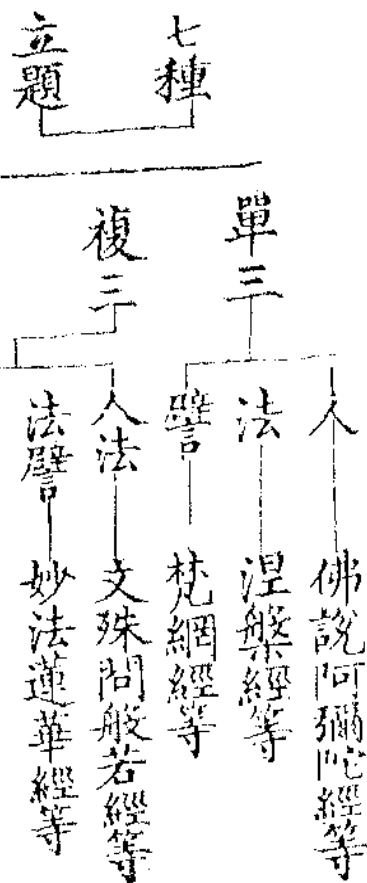 七種
立題
單三
人
佛說阿彌陀經等
法
涅槃經等
譬
梵網經等
複三
人法
文殊問般若經等
法譬
妙法蓮華經等